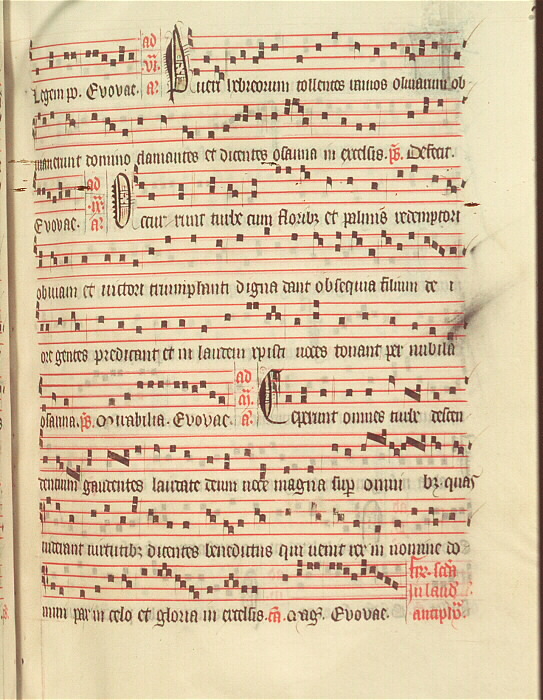 Legem pō. Evovae. ad vi. a̅ Pueri hebreorum tollentes ramos olivarum ob
viaverunt domino clamantes et dicentes osanna in excelsis. p̅s̅. Defecit.
Evovae. ad a̅ Occurrunt turbe cum floribȝ et palmis redemptori
obviam et victori triumphanti digna dant obsequia filium de i
ore gentes predicant et in laudem xpisti voces tonant per nubila
osanna. p̅s̅. Mirabilia. Evovae. ad a̅ Ceperunt omnes turbe descen
dentium gaudentes laudare deum voce magna sup̄ omni bȝ quas
viderant virtutibȝ dicentes benedictus qui venit rex in nomine do
mini pax in celo et gloria in excelsis. Evovae.
in laud
antiph̄.